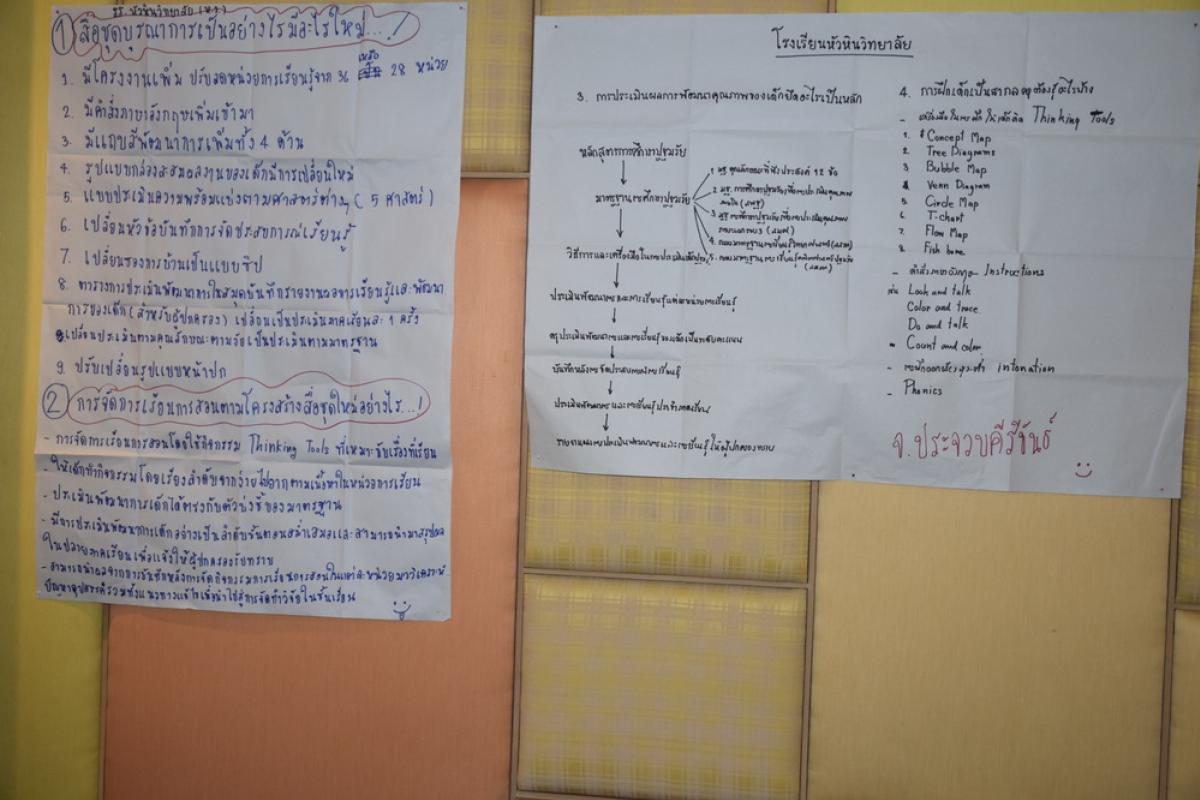 รร. หัวหินวิทยาลัย (ห.ว.)
① สื่อชุดบูรณาการเป็นอย่างไรมีอะไรใหม่...!
1. มีโครงงานเพิ่ม ปรับลดหน่วยการเรียนรู้จาก 36 เหลือ 28 หน่วย
2. มีคำสั่งภาษาอังกฤษเพิ่มเข้ามา
3. มีแถบสีพัฒนาการเพิ่มทั้ง 4 ด้าน
4. รูปแบบกล่องสะสมผลงานของเด็กมีการเปลี่ยนใหม่
5. แบบประเมินความพร้อมแบ่งตามศาสตร์ต่างๆ (5 ศาสตร์)
6. เปลี่ยนหัวข้อบันทึกการจัดประสบการณ์เรียนรู้
7. เปลี่ยนซองการบ้านเป็นแบบซิป
8. ตารางการประเมินพัฒนาการในสมุดบันทึกรายงานผลการเรียนรู้และพัฒนา
การของเด็ก (สำหรับผู้ปกครอง) เปลี่ยนเป็นประเมินภาคเรียนละ 1 ครั้ง
เปลี่ยนประเมินตามคุณลักษณะตามวัยเป็นประเมินตามมาตรฐาน
9. ปรับเปลี่ยนรูปแบบหน้าปก
② การจัดการเรียนการสอนตามโครงสร้างสื่อชุดใหม่อย่างไร...!
- การจัดการเรียนการสอนโดยใช้กิจกรรม Thinking Tools ที่เหมาะกับเรื่องที่เรียน
- ให้เด็กทำกิจกรรมโดยเรียงลำดับจากง่ายไปยากตามเนื้อหาในหน่วยการเรียน
- ประเมินพัฒนาการเด็กได้ตรงกับตัวบ่งชี้ของมาตรฐาน
- มีการประเมินพัฒนาการเด็กอย่างเป็นลำดับขั้นตอนสม่ำเสมอและสามารถนำมาสรุปผล
ในปลายภาคเรียนเพื่อแจ้งให้ผู้ปกครองรับทราบ
- สามารถนำผลจากการบันทึกหลังการจัดกิจกรรมการเรียนการสอนในแต่ละหน่วยมาวิเคราะห์
ปัญหาอุปสรรครวมทั้งแนวทางแก้ไขเพื่อนำไปสู่การจัดทำวิจัยในชั้นเรียน
โรงเรียนหัวหินวิทยาลัย
3. การประเมินผลการพัฒนาคุณภาพของเด็กยึดอะไรเป็นหลัก
หลักสูตรการศึกษาปฐมวัย
มาตรฐานการศึกษาปฐมวัย
1 มฐ. คุณลักษณะที่พึงประสงค์ 12 ข้อ
2 มฐ. การศึกษาปฐมวัยเพื่อการประเมินคุณภาพ
ภายใน
3 มฐ. การศึกษาปฐมวัยเพื่อการประเมินคุณภาพ
ภายนอกรอบ 3 (สมศ)
4. กรอบมาตรฐานการเรียนรู้วิทยาศาสตร์ (สสวท)
5. กรอบมาตรฐานการเรียนรู้คณิตศาสตร์ปฐมวัย
(สสวท)
วิธีการและเครื่องมือในการประเมินเด็กปฐมวัย
ประเมินพัฒนาการและการเรียนรู้แต่ละหน่วยการเรียนรู้
สรุปประเมินพัฒนาการและการเรียนรู้ของเด็กเป็นระดับคะแนน
บันทึกหลังการจัดประสบการณ์การเรียนรู้
ประเมินพัฒนาการและการเรียนรู้ประจำภาคเรียน
รายงานผลการประเมินพัฒนาการและการเรียนรู้ให้ผู้ปกครองทราบ
4. การฝึกเด็กเป็นสากล ครูต้องรู้อะไรบ้าง
- เครื่องมือในการฝึกให้เด็กคิด Thinking Tools
1. Concept Map
2. Tree Diagrams
3 Bubble Map
4 Venn Diagram
5. Circle Map
6. T-chart
7. Flow Map
8. Fish bone
- คำสั่งภาษาอังกฤษ Instructions
เช่น Look and talk
Color and trace
Do and talk
Count and color
- การฝึกออกเสียงสูงต่ำ intonation
- Phonics
จ.ประจวบคีรีขันธ์